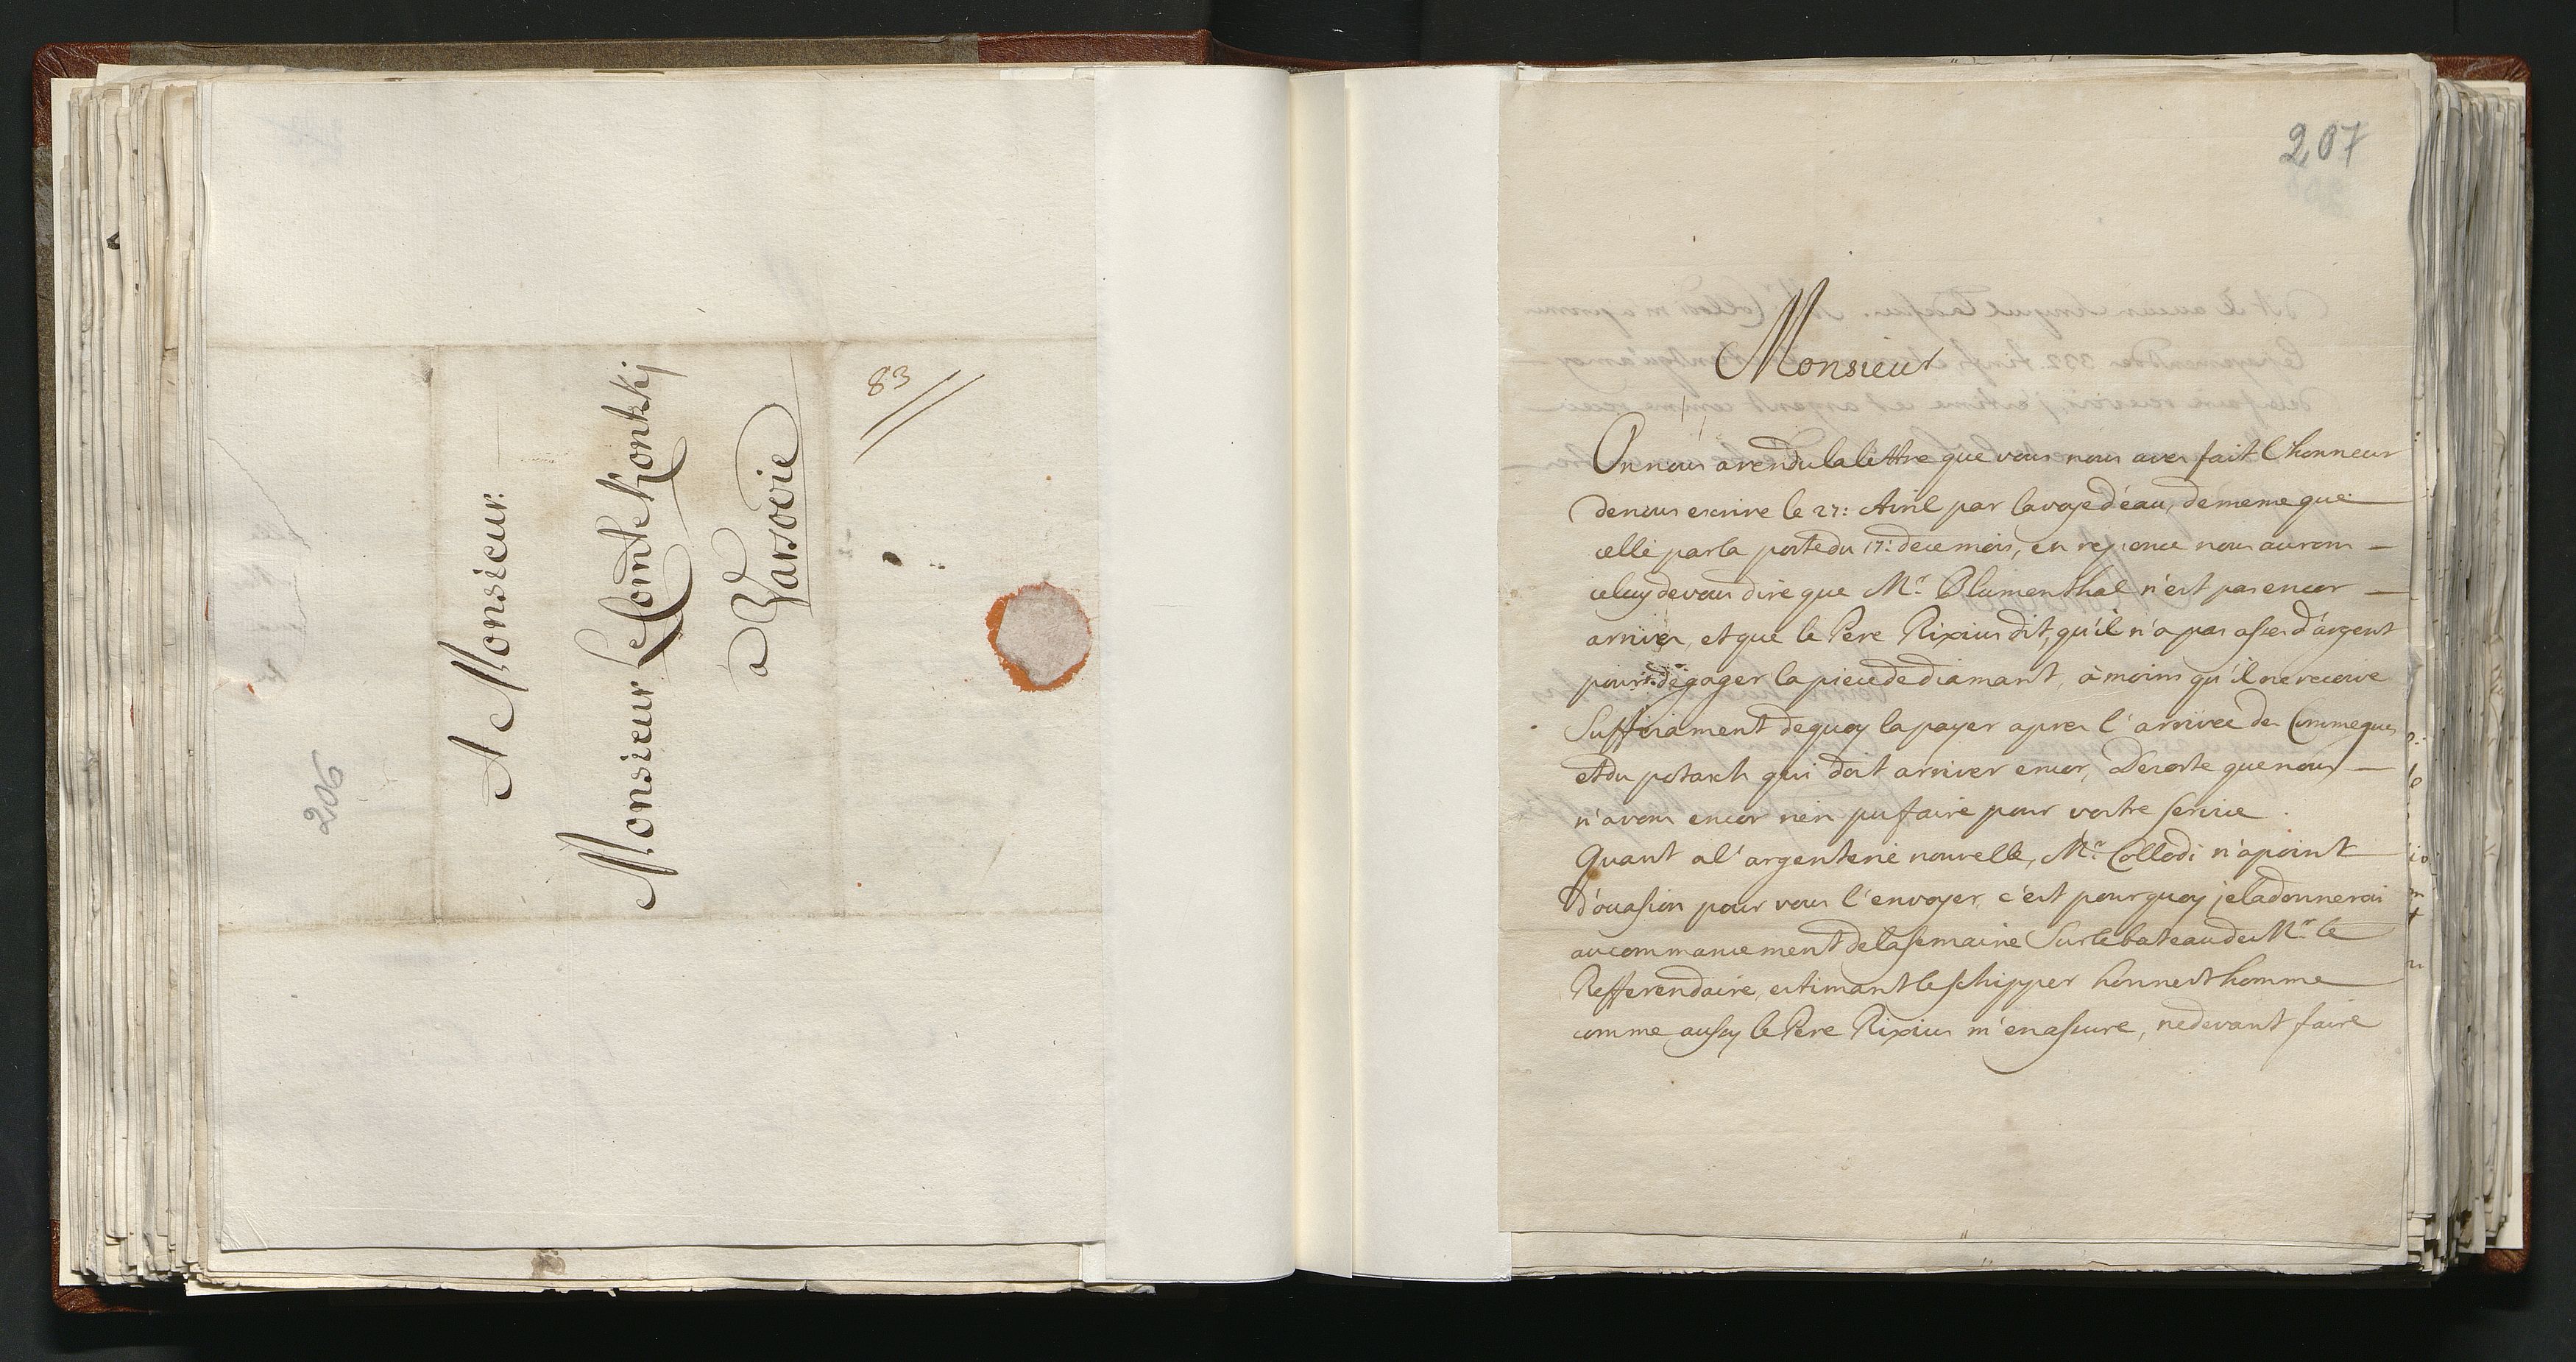 206
A Monsieur
Monsieur Le Comte Konskij
à Varsovie
83
207
Monsieur
On nous a rendu la lettre que vous nous aves fait l'honneur
de nous escrire le 27: Avril par la voye d'eau, de meme que
celle par la poste du 17: de ce mois, en reponce nous aurons
celuy de vous dire que Mr. Blumenthal n'est pas encor
arrivé, et que le Pere Rixius dit, qu'il n'a pas asses d'argent
pour degager la piece de diamant, à moins qu'il ne recoive
suffisament de quoy la payer apres l'arrivée des
et du potasch qui doit arriver encor, De sorte que nous
n'avons encor rien pu faire pour vostre service.
Quant a l'argenterie nouvelle, Mr. Collodi n'a point
d'ocasion pour vous l'envoyer, c'est pourquoy je la donnerai
au commancement de la semaine sur le bateau de Mr. le
Refferendaire, estimant le schipper honnest homme
comme aussy le Pere Rixius m'en assure, ne devant faire